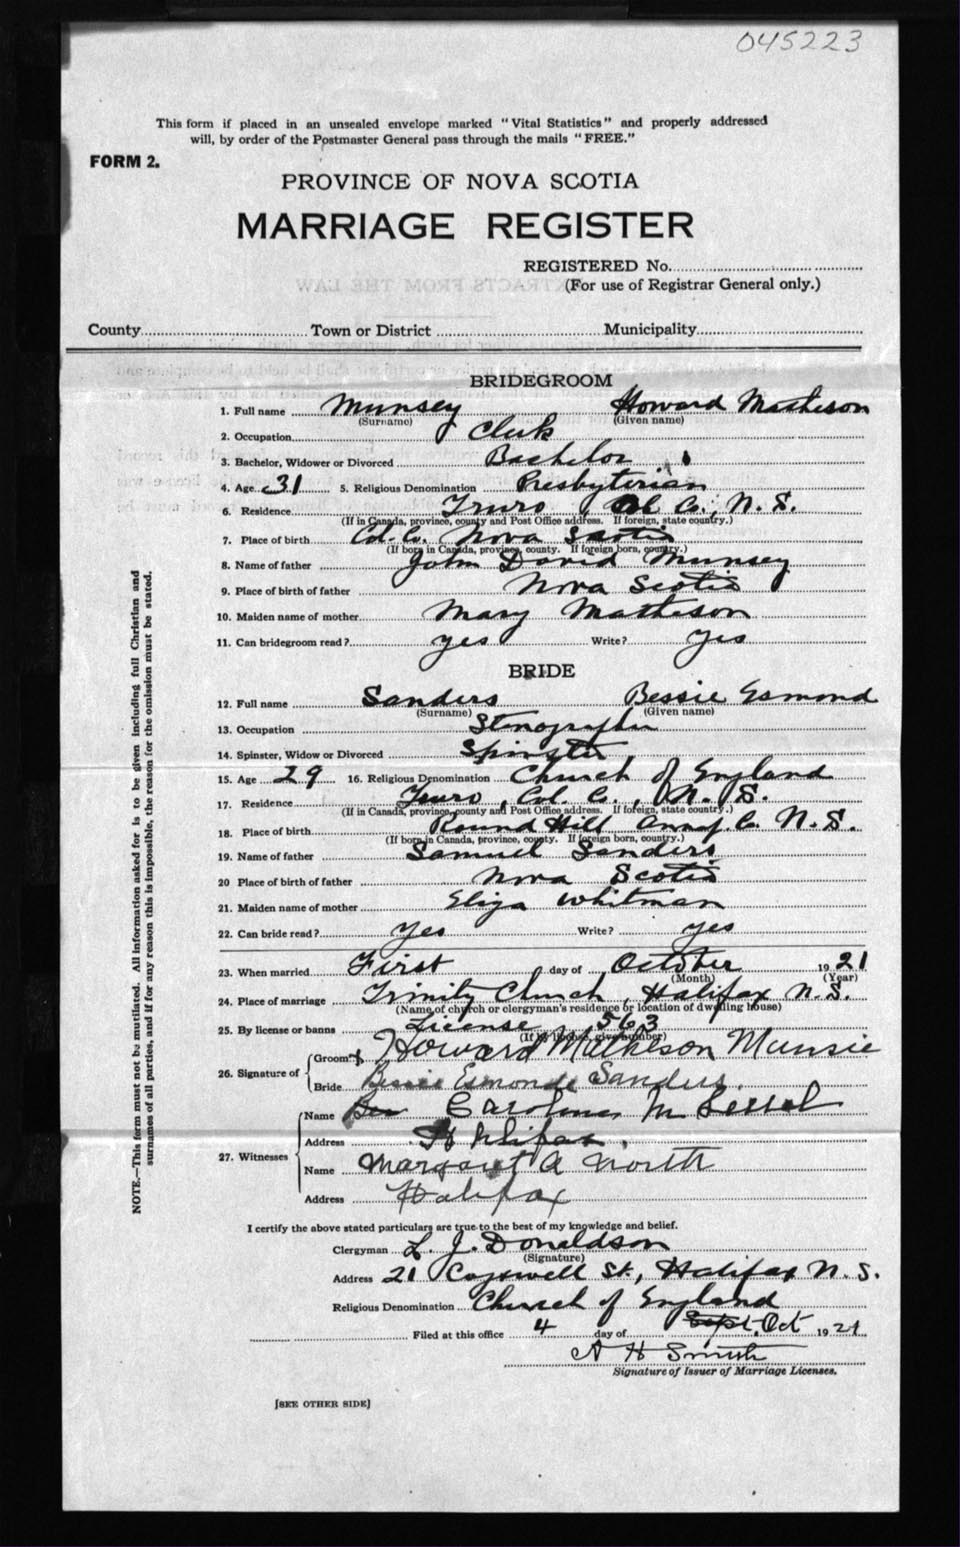 045223
This form if placed in an unsealed envelope marked "Vital Statistics" and properly addressed
will, by order of the Postmaster General pass through the mails "FREE."
FORM 2.
PROVINCE OF NOVA SCOTIA
MARRIAGE REGISTER
REGISTERED No.
(For use of Registrar General only.)
County Town or District Municipality
BRIDEGROOM
1. Full name Munsey Howard Matheson
(Surname) (Given name)
2. Occupation Clerk
3. Bachelor, Widower or Divorced Bachelor
4. Age 31 5. Religious Denomination Presbyterian
6. Residence Truro, Col Co., N. S.
(If in Canada, province, county and Post Office address. If foreign, state country.)
7. Place of birth Col. Co. Nova Scotia
(If born in Canada, province, county. If foreign born, country.)
8. Name of father John David Munsey
9. Place of birth of father Nova Scotia
10. Maiden name of mother Mary Matheson
11. Can bridegroom read? yes Write? yes
BRIDE
12. Full name Sanders Bessie Esmond
(Surname) (Given name)
13. Occupation Stenographer
14. Spinster, Widow or Divorced Spinster
15. Age 29 16. Religious Denomination Church of England
17. Residence Truro, Col. Co., N. S.
(If in Canada, province, county and Post Office address. If foreign, state country.)
18. Place of birth Round Hill Annap. Co. N. S.
(If born in Canada, province, county. If foreign born, country.)
19. Name of father Samuel Sanders
20 Place of birth of father Nova Scotia
21. Maiden name of mother Eliza Whitman
22. Can bride read? Yes Write? yes
23. When married First day of October 1921
(Month) (Year)
24. Place of marriage Trinity Church, Halifax N. S.
(Name of church or clergyman's residence or location of dwelling house)
25. By license or banns License 563
(If by license, give number)
26. Signature of Groom Howard Matheson Munsie
Bride Bessie Esmonde Sanders.
27. Witnesses Name Caroline M
Address Halifax.
Name Margaret A North
Address Halifax
I certify the above stated particulars are true to the best of my knowledge and belief.
Clergyman L. J. Donaldson
(Signature)
Address 21 Cogswell St., Halifax N. S.
Religious Denomination Church of England
Filed at this office 4 day of Sept. Oct 1921
A H Smith
Signature of Issuer of Marriage Licenses.
[SEE OTHER SIDE]
NOTE.—This form must not be mutilated. All information asked for is to be given including full Christian and
surnames of all parties, and if for any reason this is impossible, the reason for the omission must be stated.